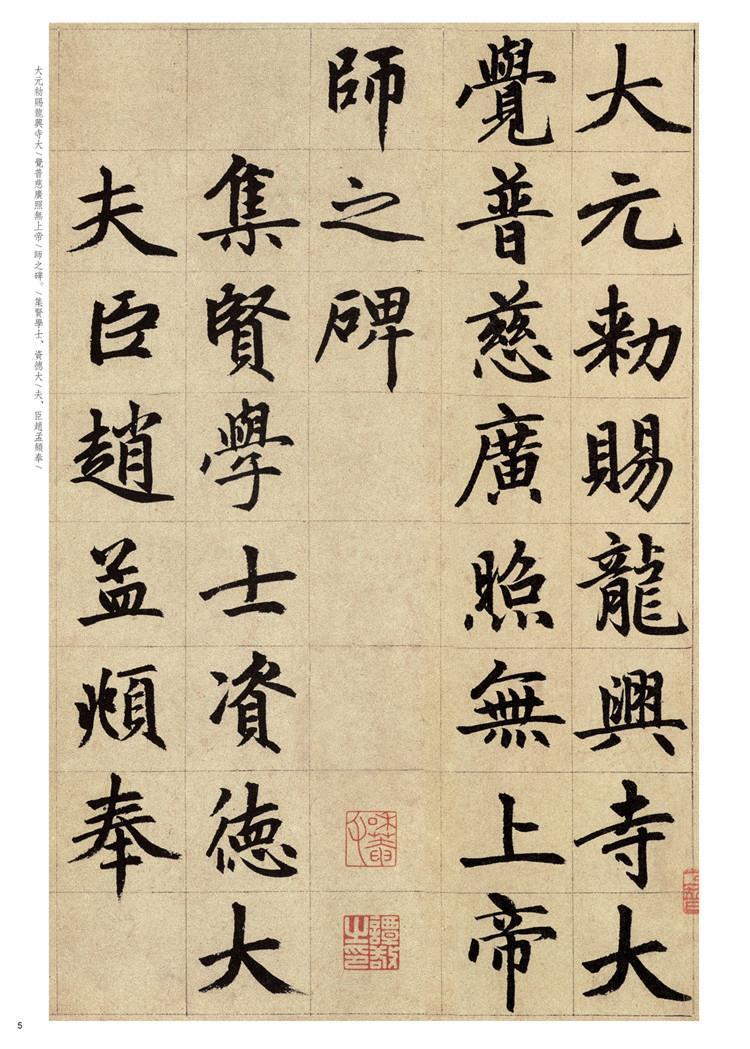 大元勑賜龍興寺大
覺普慈廣照無上帝
師之碑
集賢學士資德大
夫臣趙孟頫奉
大元勑賜龍興寺大/覺普慈廣照無上帝/師之碑。/集賢學士、資德大/夫、臣趙孟頫奉/
5